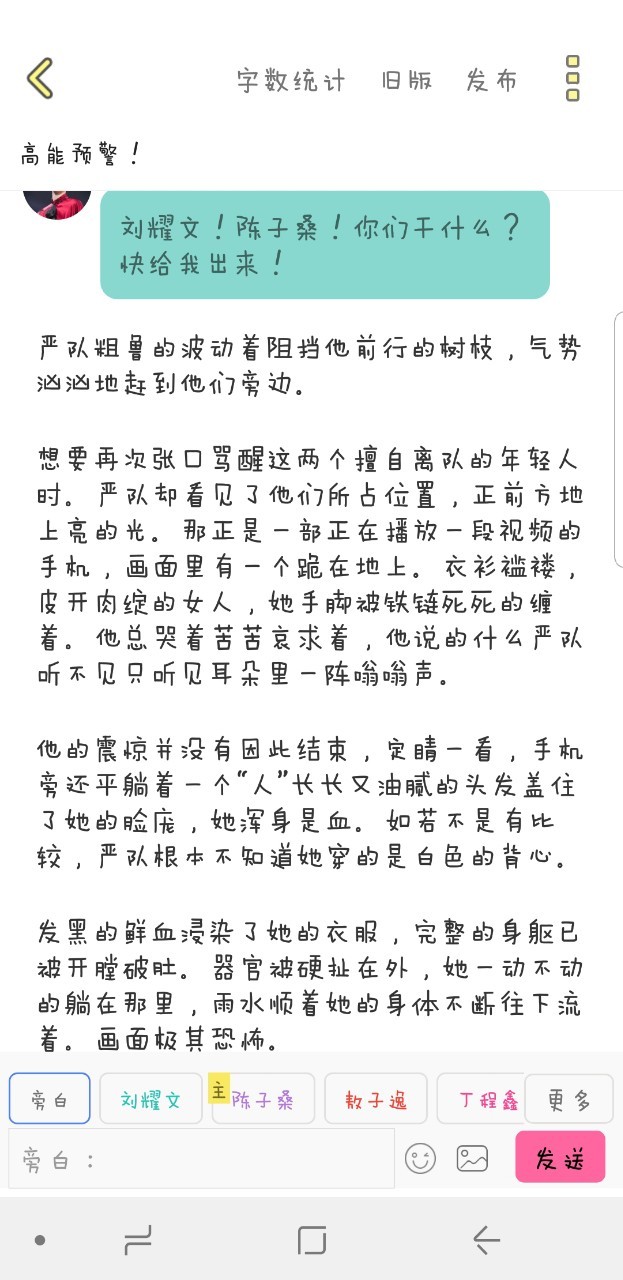 字数统计 旧版 发布
高能预警！
刘耀文！陈子桑！你们干什么？
快给我出来！
严队粗鲁的波动着阻挡他前行的树枝，气势
汹汹地赶到他们旁边。
想要再次张口骂醒这两个擅自离队的年轻人
时。严队却看见了他们所占位置，正前方地
上亮的光。那正是一部正在播放一段视频的
手机，画面里有一个跪在地上。衣衫褴褛，
皮开肉绽的女人，她手脚被铁链死死的缠
着。他总哭着苦苦哀求着，他说的什么严队
听不见只听见耳朵里一阵嗡嗡声。
他的震惊并没有因此结束，定睛一看，手机
旁还平躺着一个“人”长长又油腻的头发盖住
了她的脸庞，她浑身是血。如若不是有比
较，严队根本不知道她穿的是白色的背心。
发黑的鲜血浸染了她的衣服，完整的身躯已
被开膛破肚。器官被硬扯在外，她一动不动
的躺在那里，雨水顺着她的身体不断往下流
着。画面极其恐怖。
旁白 刘耀文 主 陈子桑 敖子逸 丁程鑫 更多
旁白： 发送